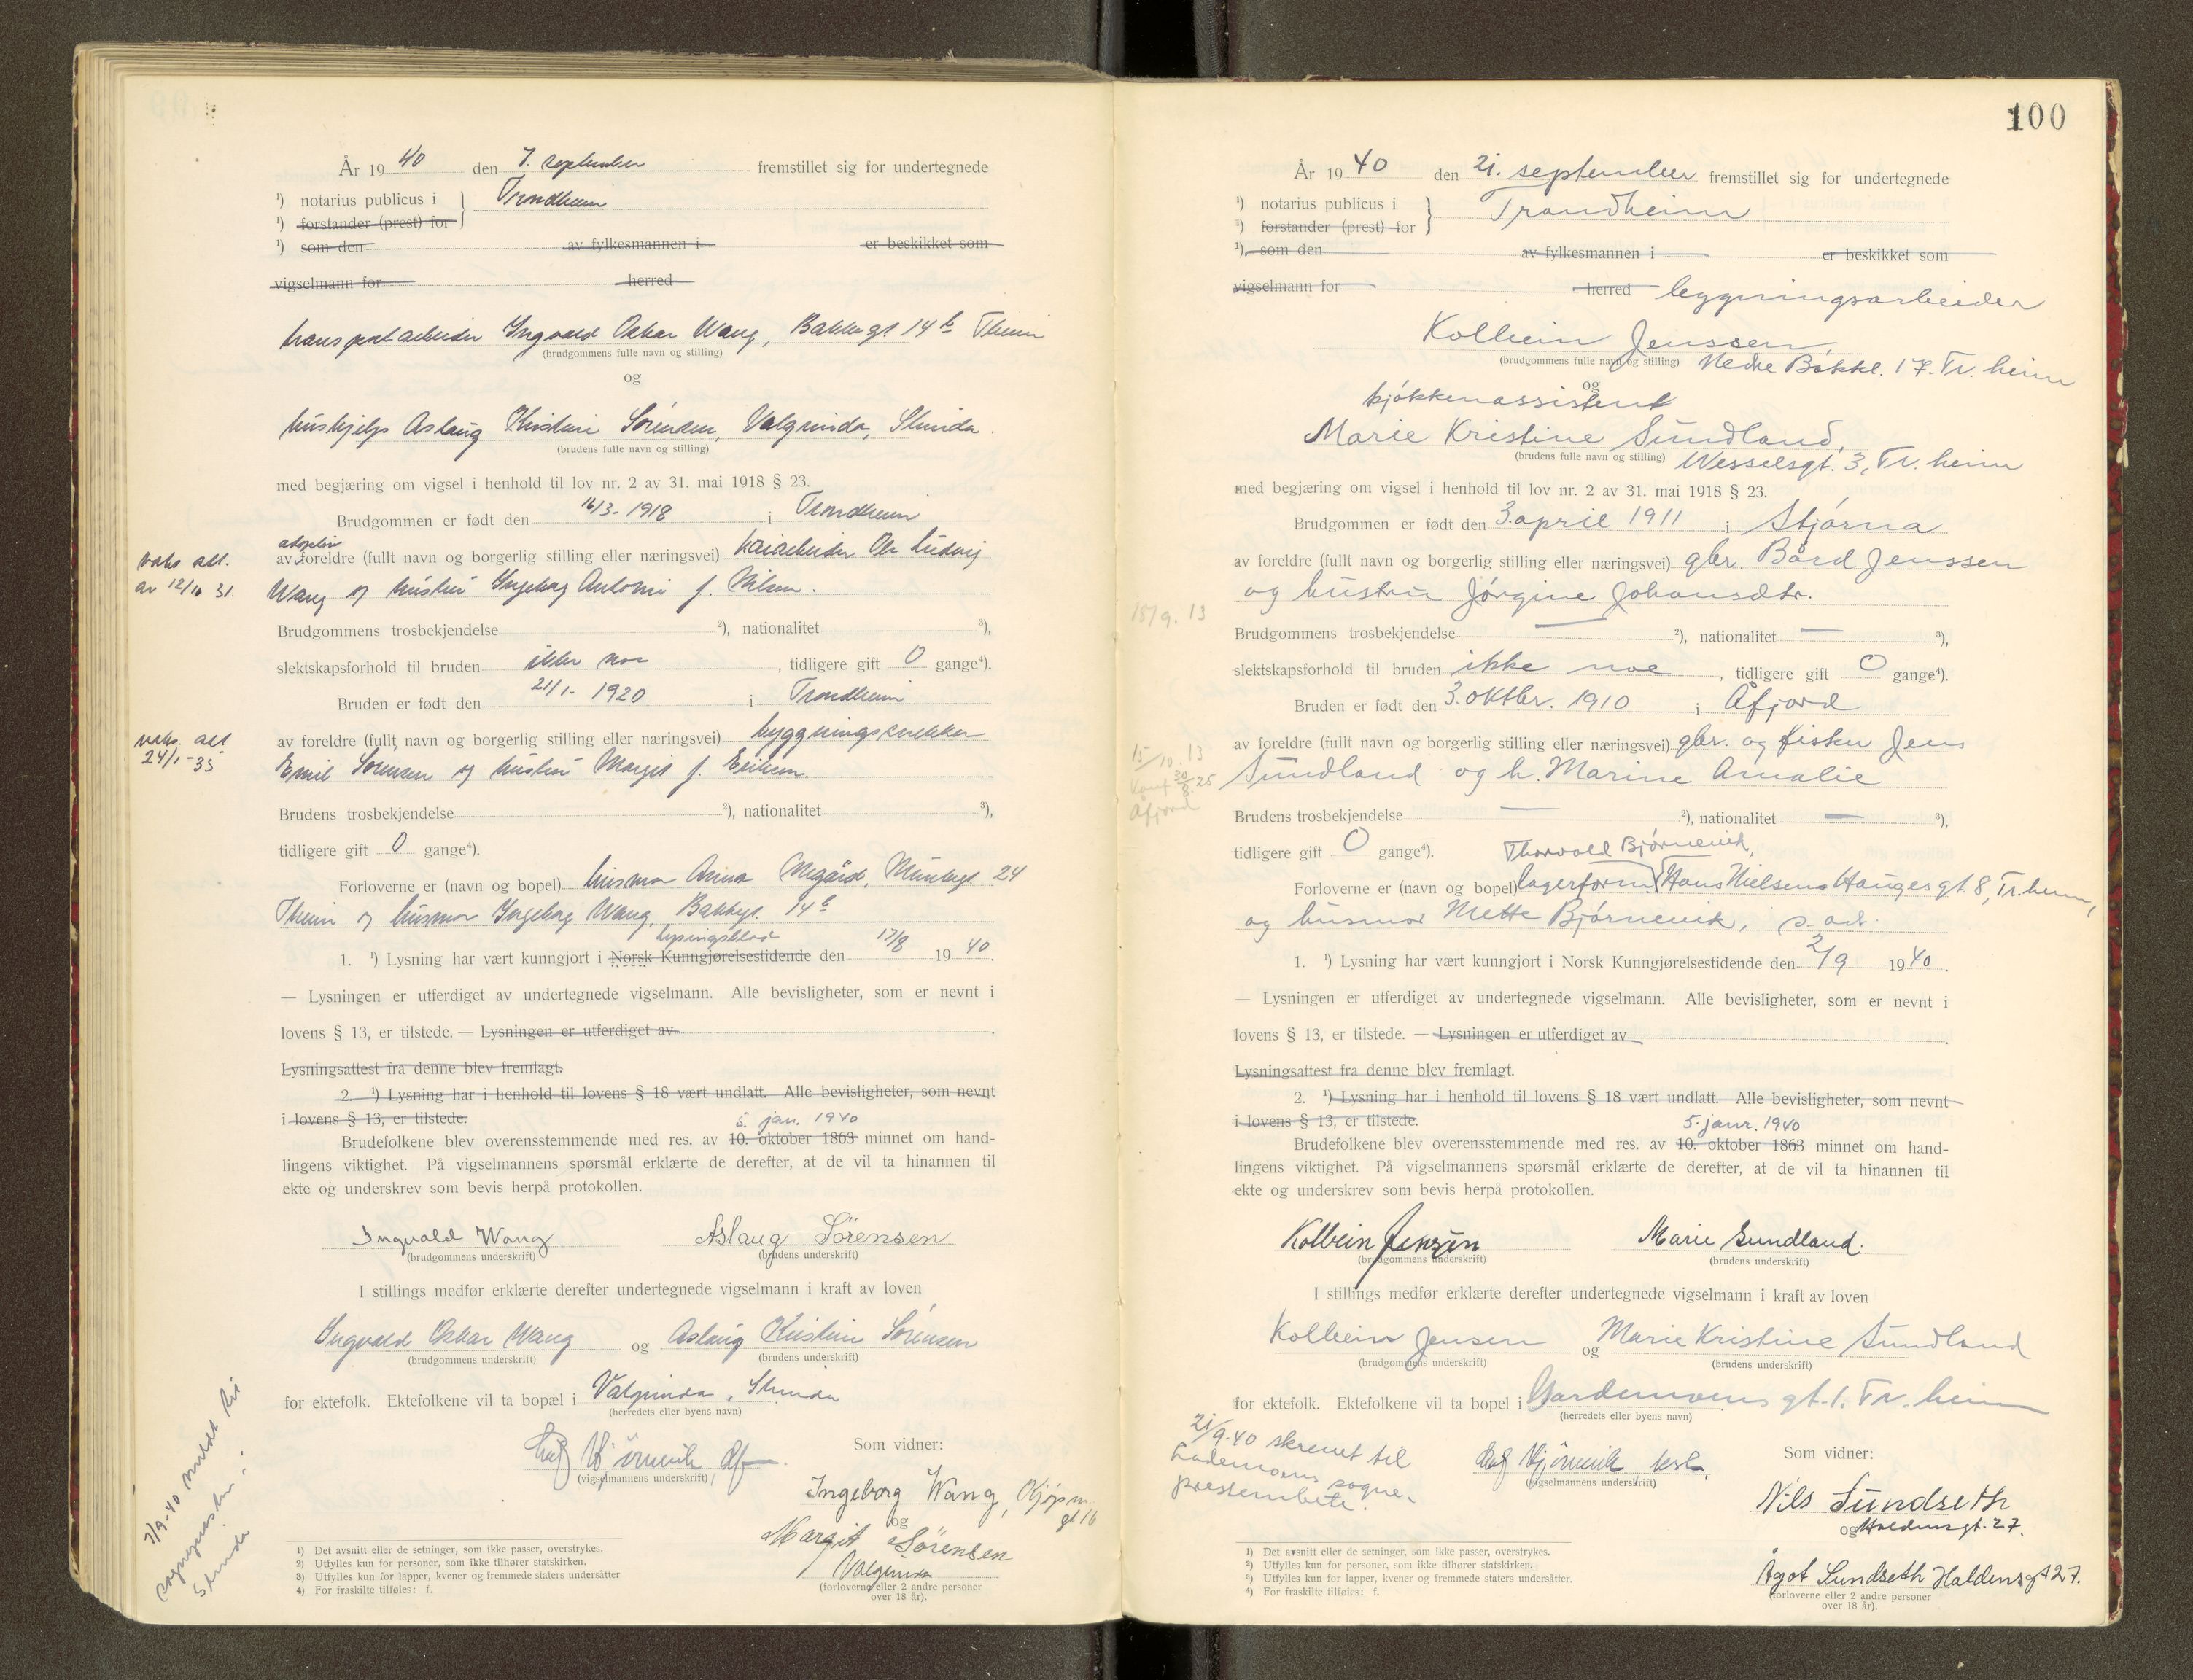 År 19 40 den 7. september fremstillet sig for undertegnede
¹) notarius publicus i } Trondheim
¹) forstander (prest) for
¹) som den av fylkesmannen i er beskikket som
vigselmann for herred
transportarbeider Ingvald Oskar Wang, Bakkegt 14b Theim
(brudgommens fulle navn og stilling)
og
hushjelp Aslaug Kristine Sørensen, Valgrinda, Strinda.
(brudens fulle navn og stilling)
med begjæring om vigsel i henhold til lov nr. 2 av 31. mai 1918 § 23.
Brudgommen er født den 16/3-1918 i Trondheim
adoptiv
vaks. att. av foreldre (fullt navn og borgerlig stilling eller næringsvei) kaiarbeider Ole Ludvig
av 12/10 31. Wang og hustru Ingeborg Antonie f. Nilsen.
Brudgommens trosbekjendelse ²), nationalitet ³),
slektskapsforhold til bruden ikke noe , tidligere gift 0 gange⁴).
Bruden er født den 21/1-1920 i Trondheim
vaks. att av foreldre (fullt navn og borgerlig stilling eller næringsvei) byggningssnekker
24/1-35 Emil Sørensen og hustru Margit f. Eriksen.
Brudens trosbekjendelse ²), nationalitet ³),
tidligere gift 0 gange⁴).
Forloverne er (navn og bopel) husmor Anna Megård, Munkegt. 24
Theim og husmor Ingeborg Wang, Bakkegt. 14b
lysingsblad
1. ¹) Lysning har vært kunngjort i Norsk Kunngjørelsestidende den 17/8 19 40.
— Lysningen er utferdiget av undertegnede vigselmann. Alle bevisligheter, som er nevnt i
lovens § 13, er tilstede. — Lysningen er utferdiget av .
Lysningsattest fra denne blev fremlagt.
2. ¹) Lysning har i henhold til lovens § 18 vært undlatt. Alle bevisligheter, som nevnt
i lovens § 13, er tilstede.
5. jan. 1940
Brudefolkene blev overensstemmende med res. av 10. oktober 1863 minnet om hand-
lingens viktighet. På vigselmannens spørsmål erklærte de derefter, at de vil ta hinannen til
ekte og underskrev som bevis herpå protokollen.
Ingvald Wang Aslaug Sørensen
(brudgommens underskrift) (brudens underskrift)
I stillings medfør erklærte derefter undertegnede vigselmann i kraft av loven
Ingvald Oskar Wang og Aslaug Kristine Sørensen
(brudgommens underskrift) (brudens underskrift)
for ektefolk. Ektefolkene vil ta bopæl i Valgrinda, Strinda
(herredets eller byens navn)
(vigselmannens underskrift)
Som vidner:
Ingeborg Wang, Kjøpm.
gt 16
og
Margit Sørensen
Valgrinda
(forloverne eller 2 andre personer
over 18 år).
7/9-40 meldt til
sognepresten i
Strinda
1) Det avsnitt eller de setninger, som ikke passer, overstrykes.
2) Utfylles kun for personer, som ikke tilhører statskirken.
3) Utfylles kun for lapper, kvener og fremmede staters undersåtter
4) For fraskilte tilføies: f.
100
År 19 40 den 21. september fremstillet sig for undertegnede
¹) notarius publicus i } Trondheim
¹) forstander (prest) for
¹) som den av fylkesmannen i er beskikket som
vigselmann for herred byggningsarbeider
Kolbein Jenssen,
(brudgommens fulle navn og stilling) Nedre Bakkl. 17. Tr.heim
og
kjøkkenassistent
Marie Kristine Sundland,
(brudens fulle navn og stilling) Wesselsgt. 3, Tr.heim
med begjæring om vigsel i henhold til lov nr. 2 av 31. mai 1918 § 23.
Brudgommen er født den 3. april 1911 i Stjørna
av foreldre (fullt navn og borgerlig stilling eller næringsvei) gbr. Bård Jenssen
og hustru Jørgine Johansdtr.
15/9. 13
Brudgommens trosbekjendelse — ²), nationalitet — ³),
slektskapsforhold til bruden ikke noe , tidligere gift 0 gange⁴).
Bruden er født den 3. oktbr. 1910 i Åfjord
av foreldre (fullt navn og borgerlig stilling eller næringsvei) gbr. og fisker Jens
Sundland og h. Marine Amalie
15/10. 13
konf 30/8 25
Åfjord
Brudens trosbekjendelse — ²), nationalitet — ³),
tidligere gift 0 gange⁴). Thorvald Bjørnevik,
Forloverne er (navn og bopel) lagerform. Hans Nielsens Hauges gt 8, Tr.heim,
og husmor Mette Bjørnevik, s. ad.
1. ¹) Lysning har vært kunngjort i Norsk Kunngjørelsestidende den 2/9 19 40.
— Lysningen er utferdiget av undertegnede vigselmann. Alle bevisligheter, som er nevnt i
lovens § 13, er tilstede. — Lysningen er utferdiget av .
Lysningsattest fra denne blev fremlagt.
2. ¹) Lysning har i henhold til lovens § 18 vært undlatt. Alle bevisligheter, som nevnt
i lovens § 13, er tilstede.
5. janr. 1940
Brudefolkene blev overensstemmende med res. av 10. oktober 1863 minnet om hand-
lingens viktighet. På vigselmannens spørsmål erklærte de derefter, at de vil ta hinannen til
ekte og underskrev som bevis herpå protokollen.
Kolbein Jensen Marie Sundland.
(brudgommens underskrift) (brudens underskrift)
I stillings medfør erklærte derefter undertegnede vigselmann i kraft av loven
Kolbein Jensen og Marie Kristine Sundland
(brudgommens underskrift) (brudens underskrift)
for ektefolk. Ektefolkene vil ta bopel i Gardemoens gt. 1. Tr.heim
(herredets eller byens navn)
21/9-40 skrevet til
Lademoens sogne-
prestembete.
(vigselmannens underskrift)
Som vidner:
Nils Sundseth
og Haldensgt. 27.
Ågot Sundseth Haldensgt 27.
(forloverne eller 2 andre personer
over 18 år).
1) Det avsnitt eller de setninger, som ikke passer, overstrykes.
2) Utfylles kun for personer, som ikke tilhører statskirken.
3) Utfylles kun for lapper, kvener og fremmede staters undersåtter.
4) For fraskilte tilføies: f.